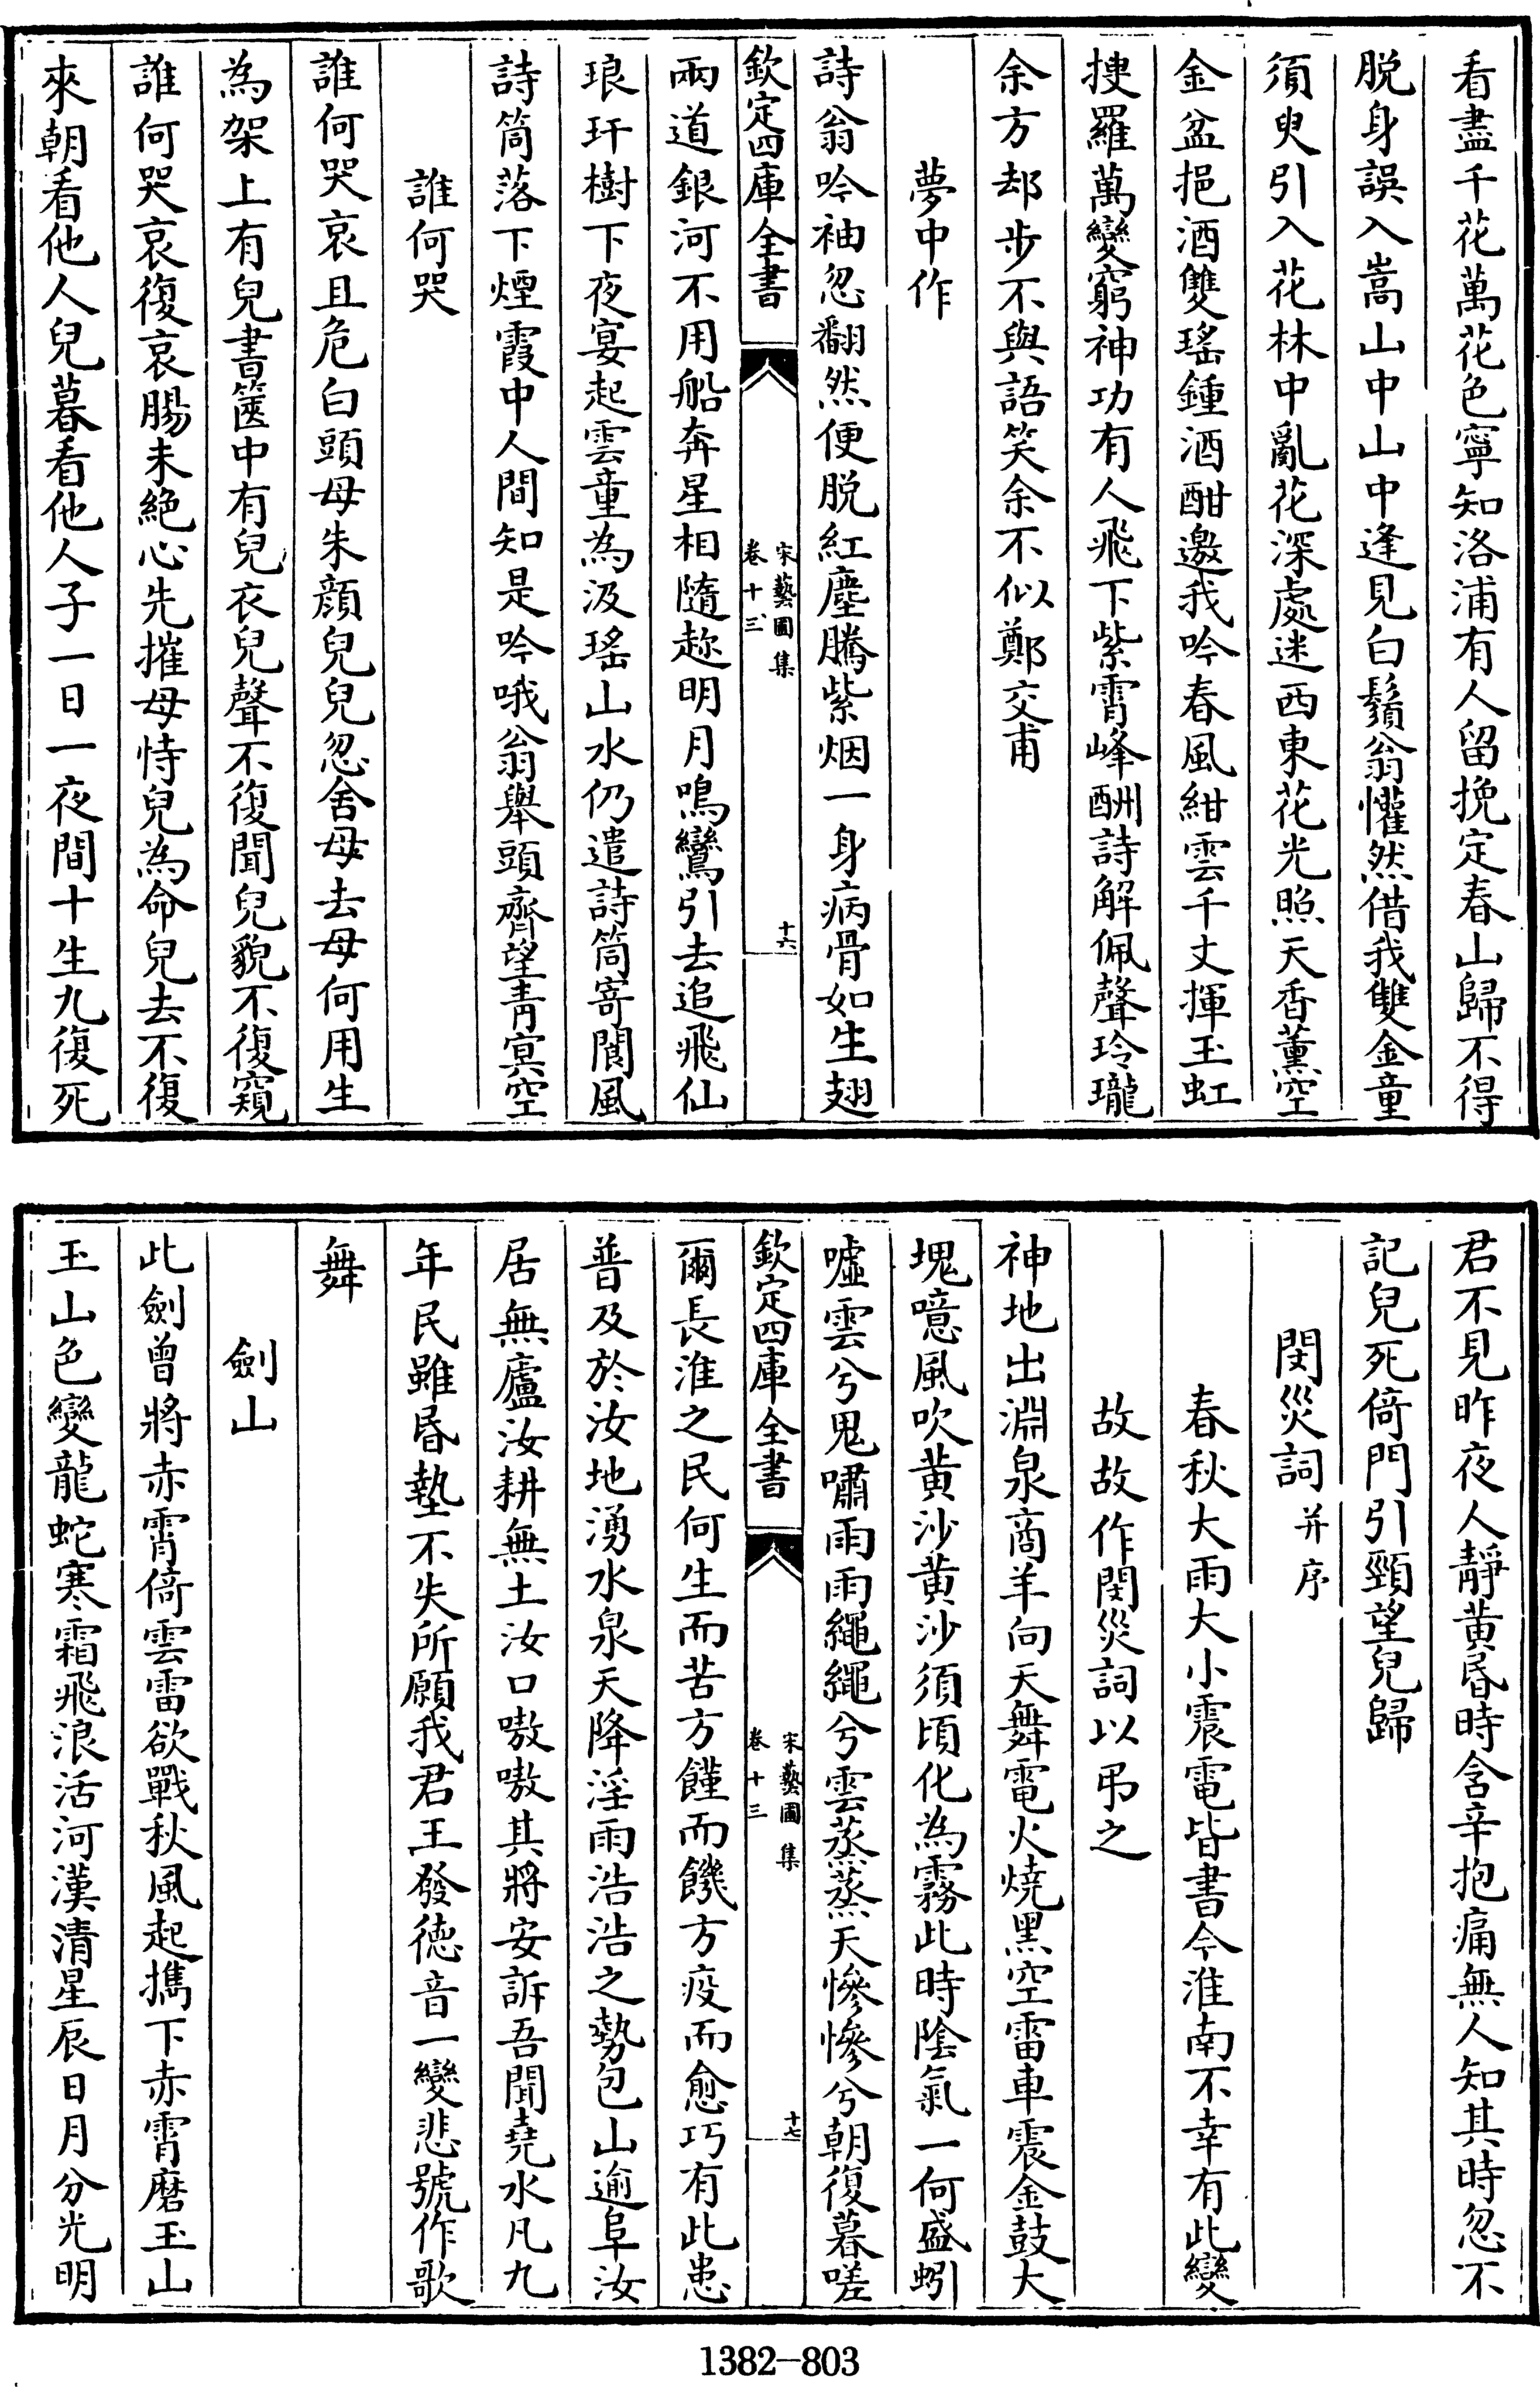 看盡千花萬花色寧知洛浦有人留挽定春山歸不得
脱身誤入嵩山中山中逢見白鬚翁懽然借我雙金童
須臾引入花林中亂花深處迷西東花光照天香薰空
金盆挹酒雙瑤鍾酒酣邀我吟春風紺雲千丈揮玉虹
捜羅萬變窮神功有人飛下紫霄峰酬詩解佩聲玲瓏
余方却步不與語笑余不似鄭交甫
夢中作
詩翁吟袖忽翻然便脱紅塵騰紫烟一身病骨如生翅
欽定四庫全書
宋藝圃集
卷十三
十六
兩道銀河不用船奔星相隨趂明月鳴鸞引去追飛仙
琅玕樹下夜宴起雲童為汲瑤山水仍遣詩筒寄閬風
詩筒落下煙霞中人間知是吟哦翁舉頭齊望青冥空
誰何哭
誰何哭哀且危白頭母朱顔兒兒忽舍母去母何用生
為架上有兒書篋中有兒衣兒聲不復聞兒貌不復窺
誰何哭哀復哀腸未絶心先摧母恃兒為命兒去不復
來朝看他人兒暮看他人子一日一夜間十生九復死
君不見昨夜人靜黄昏時含辛抱痛無人知其時忽不
記兒死倚門引頸望兒歸
閔災詞并序
春秋大雨大小震電皆書今淮南不幸有此變
故故作閔災詞以弔之
神地出淵泉商羊向天舞電火燒黑空雷車震金鼓大
塊噫風吹黄沙黄沙須頃化為霧此時陰氣一何盛蚓
嘘雲兮鬼嘯雨雨繩繩兮雲蒸蒸天慘慘兮朝復暮嗟
欽定四庫全書
宋藝圃集
卷十三
十七
爾長淮之民何生而苦方饉而饑方疫而愈巧有此患
普及於汝地湧水泉天降淫雨浩浩之勢包山逾阜汝
居無廬汝耕無土汝口嗷嗷其將安訴吾聞堯水凡九
年民雖昏墊不失所願我君王發徳音一變悲號作歌
舞
劍山
此劍曾將赤霄倚雲雷欲戰秋風起攜下赤霄磨玉山
玉山色變龍蛇寒霜飛浪活河漢清星辰日月分光明
1382—803